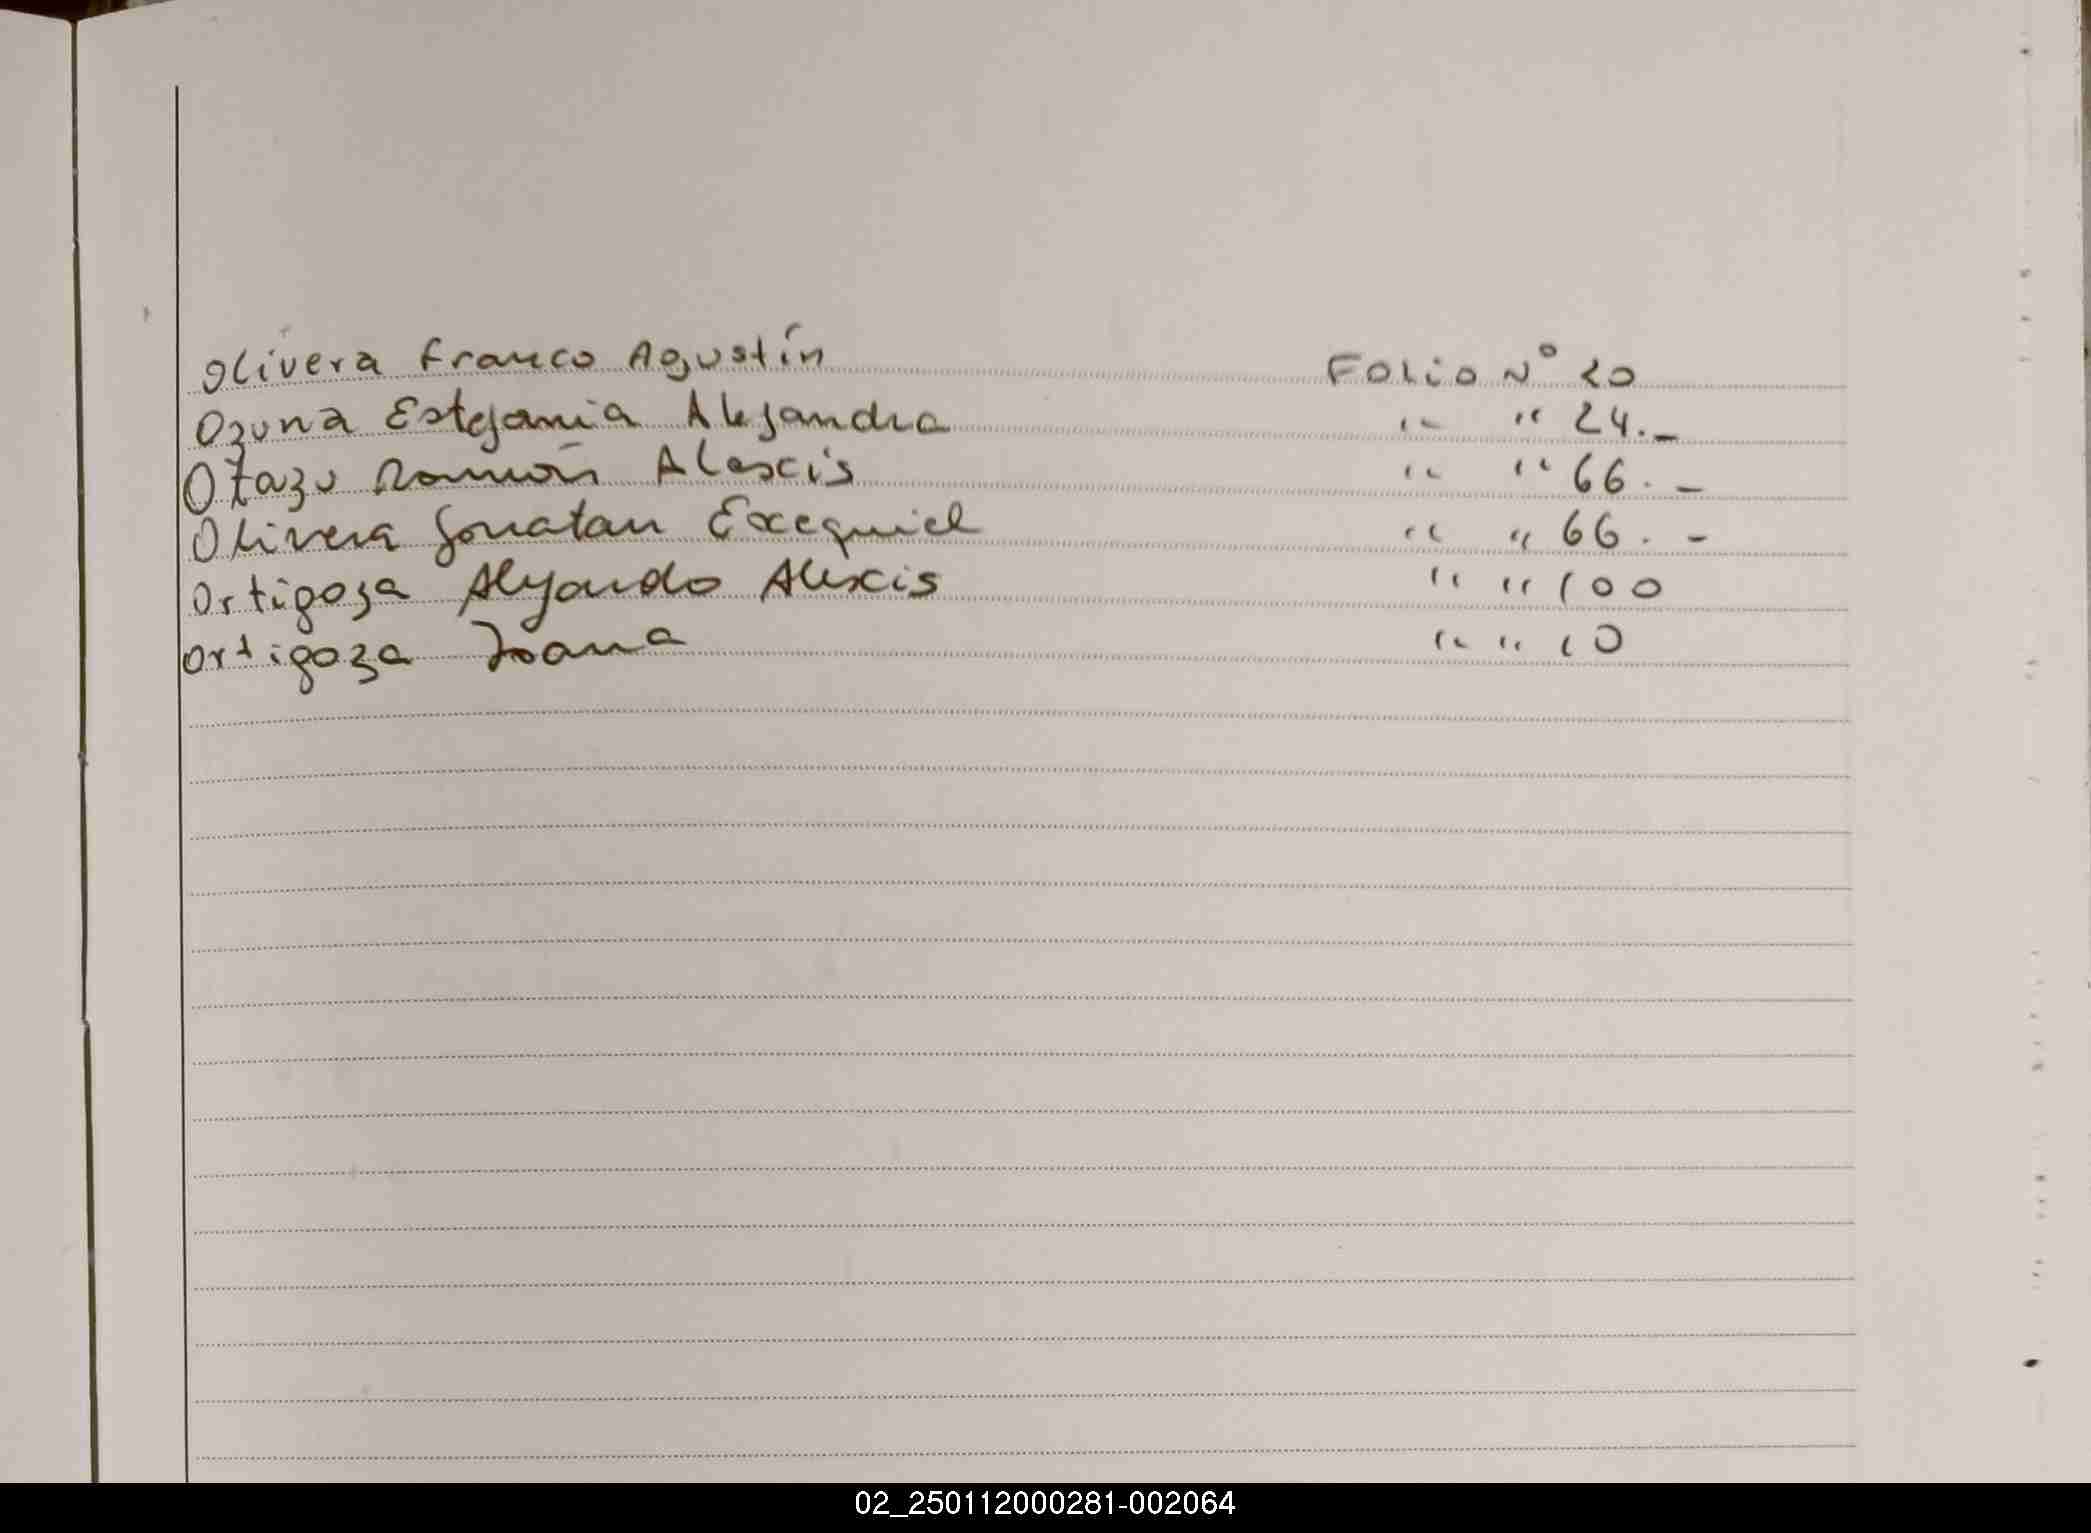 Olivera Franco Agustín Folio Nº 20
Ozuna Estefania Alejandra " " 24.-
Otazu Ramón Alexis " " 66.-
Olivera Jonatan Exequiel " " 66.-
Ortigoza Alejandro Alexis " " 100
Ortigoza Ioana " " 10
02_250112000281-002064